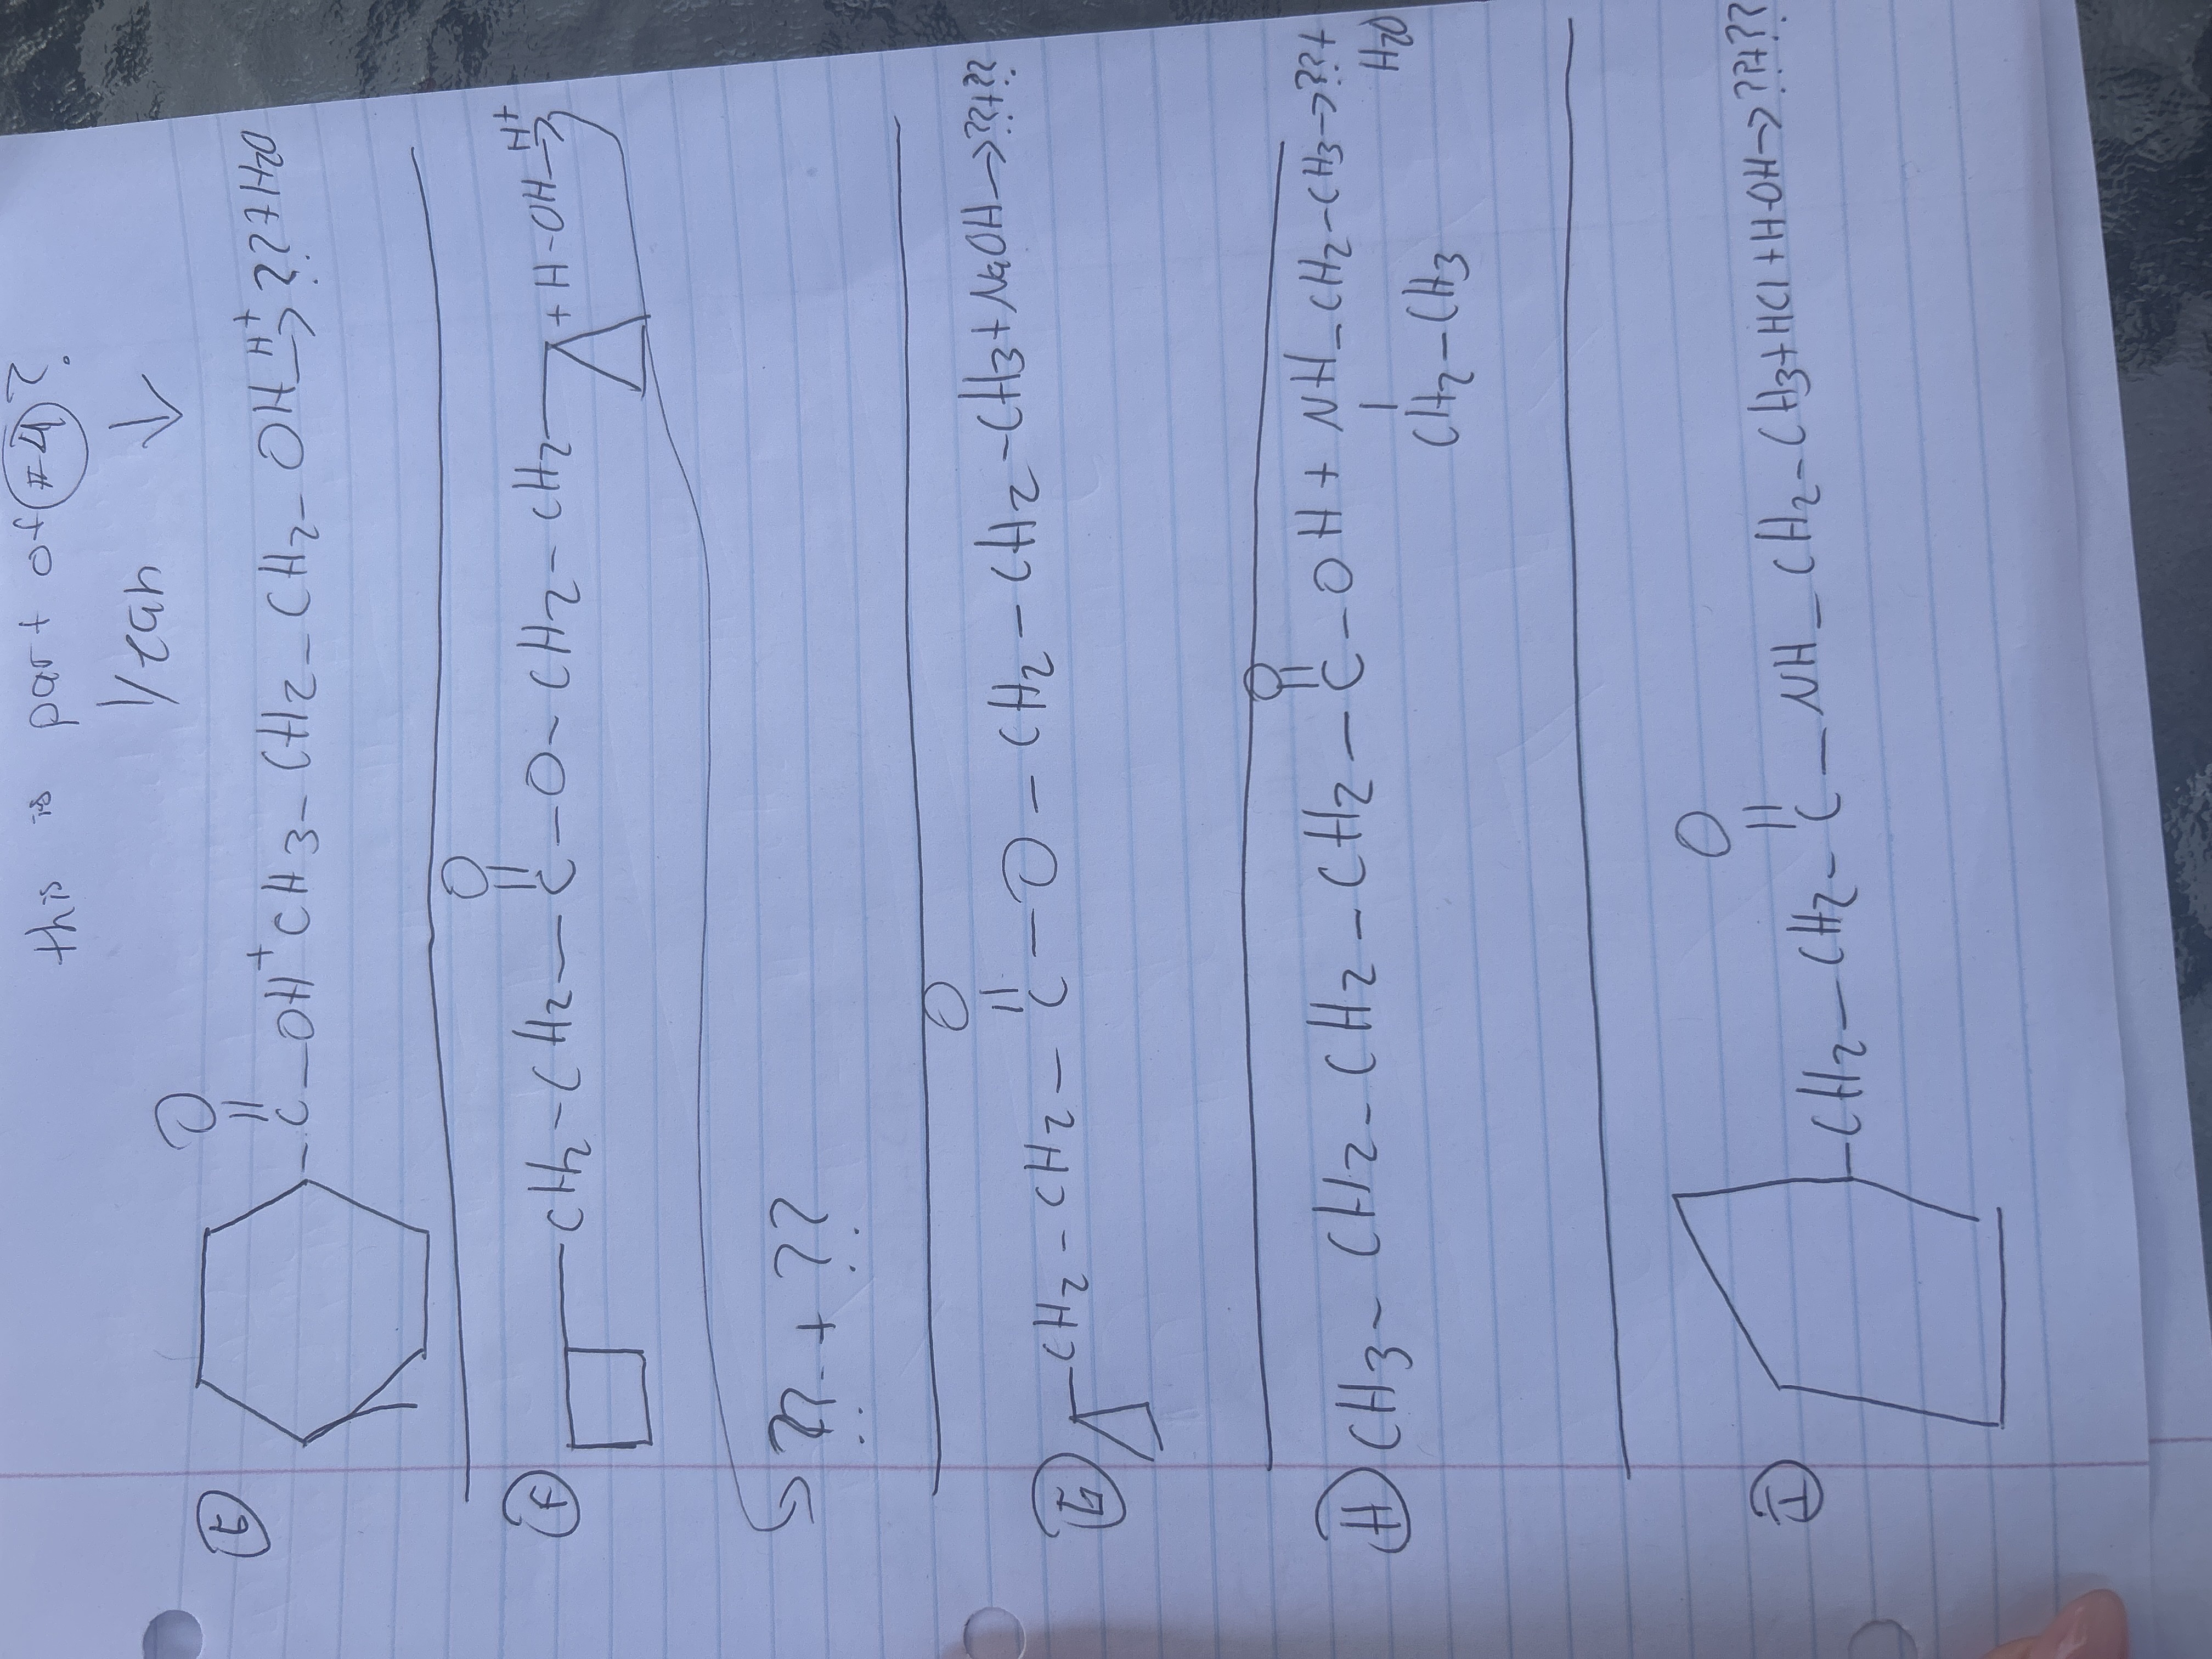 this is part of #4?
Yeah ↓
O
||
-C-OH + CH3-CH2-CH2-CH2-OH H+→ ?? + H2O
F
O
||
CH2-CH2-C-O-CH2-CH2 + H-OH H+→
?? + ??
G
O
||
CH2-CH2-C-O-CH2-CH2-CH2-CH3+NaOH→??+??
H
O
||
CH3-CH2-CH2-CH2-CH2-C-OH + NH-CH2-CH3→??+
H2O
|
CH2-CH3
I
O
||
CH2-CH2-C-NH-CH2-CH3+HCl+HOH→??+??